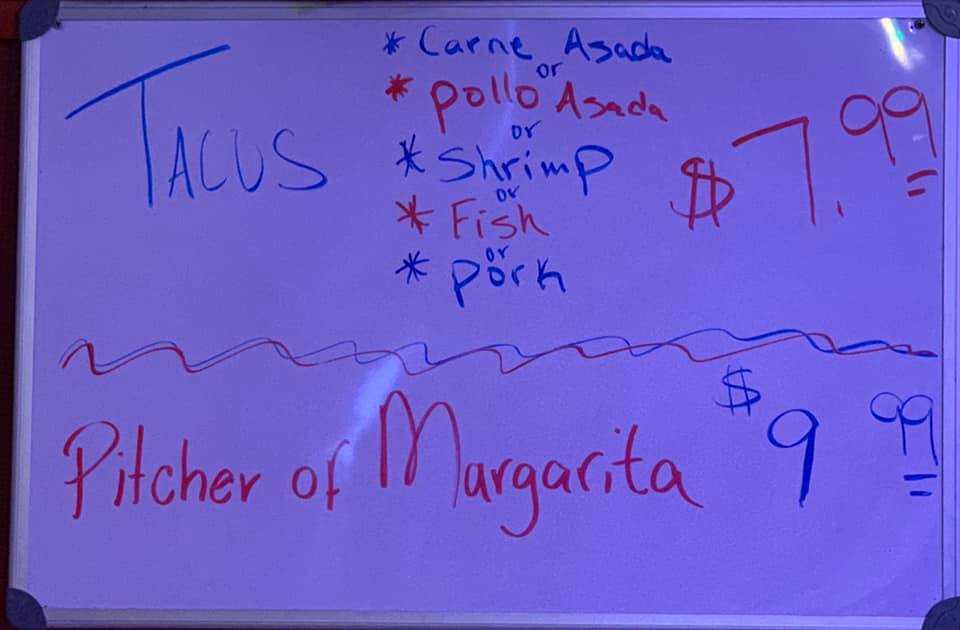 TACUS
* Carne Asada
or
* pollo Asada
or
* Shrimp
or
* Fish
or
* pork
$7.99
Pitcher of Margarita $9 99